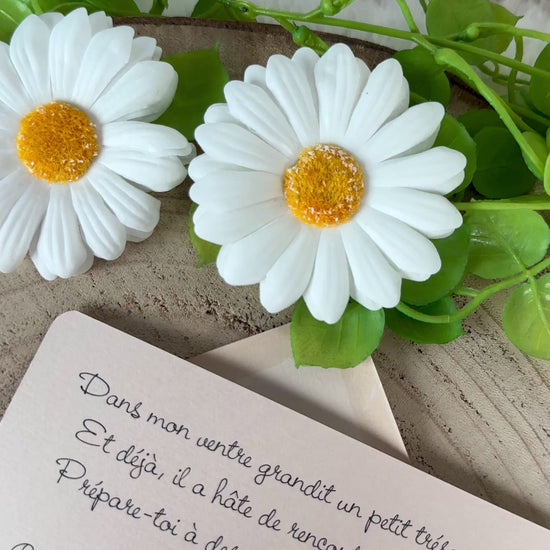 Dans mon ventre grandit un petit
Et déjà, il a hâte de
Prépare-toi à